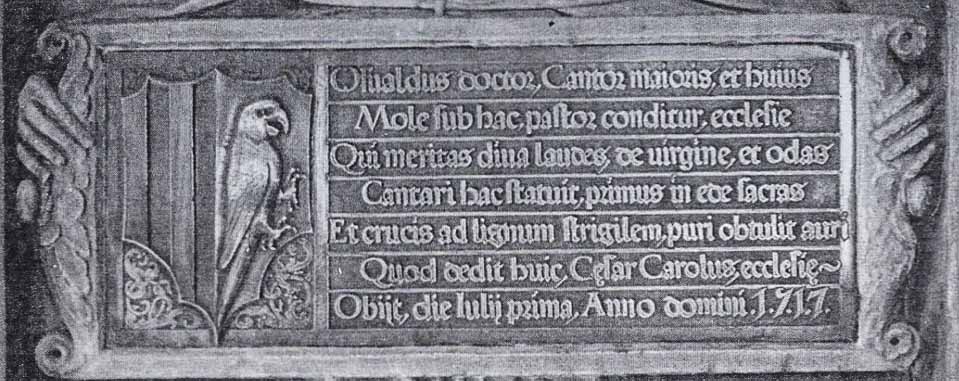 Osualdus doctor, Cantor maioris, et huius
Mole sub hac, pastor conditur, ecclesie
Qui meritas diua laudes, de uirgine, et odas
Cantari hac statuit, primus in ede sacras
Et crucis ad lignum strigilem, puri obtulit auri
Quod dedit huic, Cęsar Carolus, ecclesię~
Obijt, die Iulij prima, Anno domini .1.5.1.7.